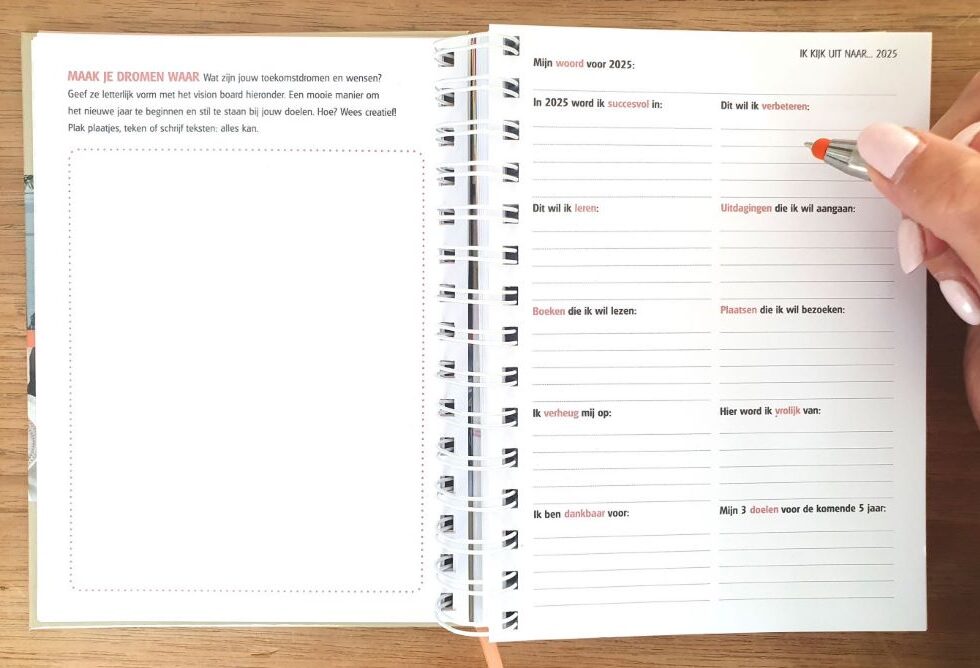 MAAK JE DROMEN WAAR Wat zijn jouw toekomstdromen en wensen?
Geef ze letterlijk vorm met het vision board hieronder. Een mooie manier om
het nieuwe jaar te beginnen en stil te staan bij jouw doelen. Hoe? Wees creatief!
Plak plaatjes, teken of schrijf teksten: alles kan.
IK KIJK UIT NAAR... 2025
Mijn woord voor 2025:
In 2025 word ik succesvol in:
Dit wil ik verbeteren:
Dit wil ik leren:
Uitdagingen die ik wil aangaan:
Boeken die ik wil lezen:
Plaatsen die ik wil bezoeken:
Ik verheug mij op:
Hier word ik vrolijk van:
Ik ben dankbaar voor:
Mijn 3 doelen voor de komende 5 jaar: